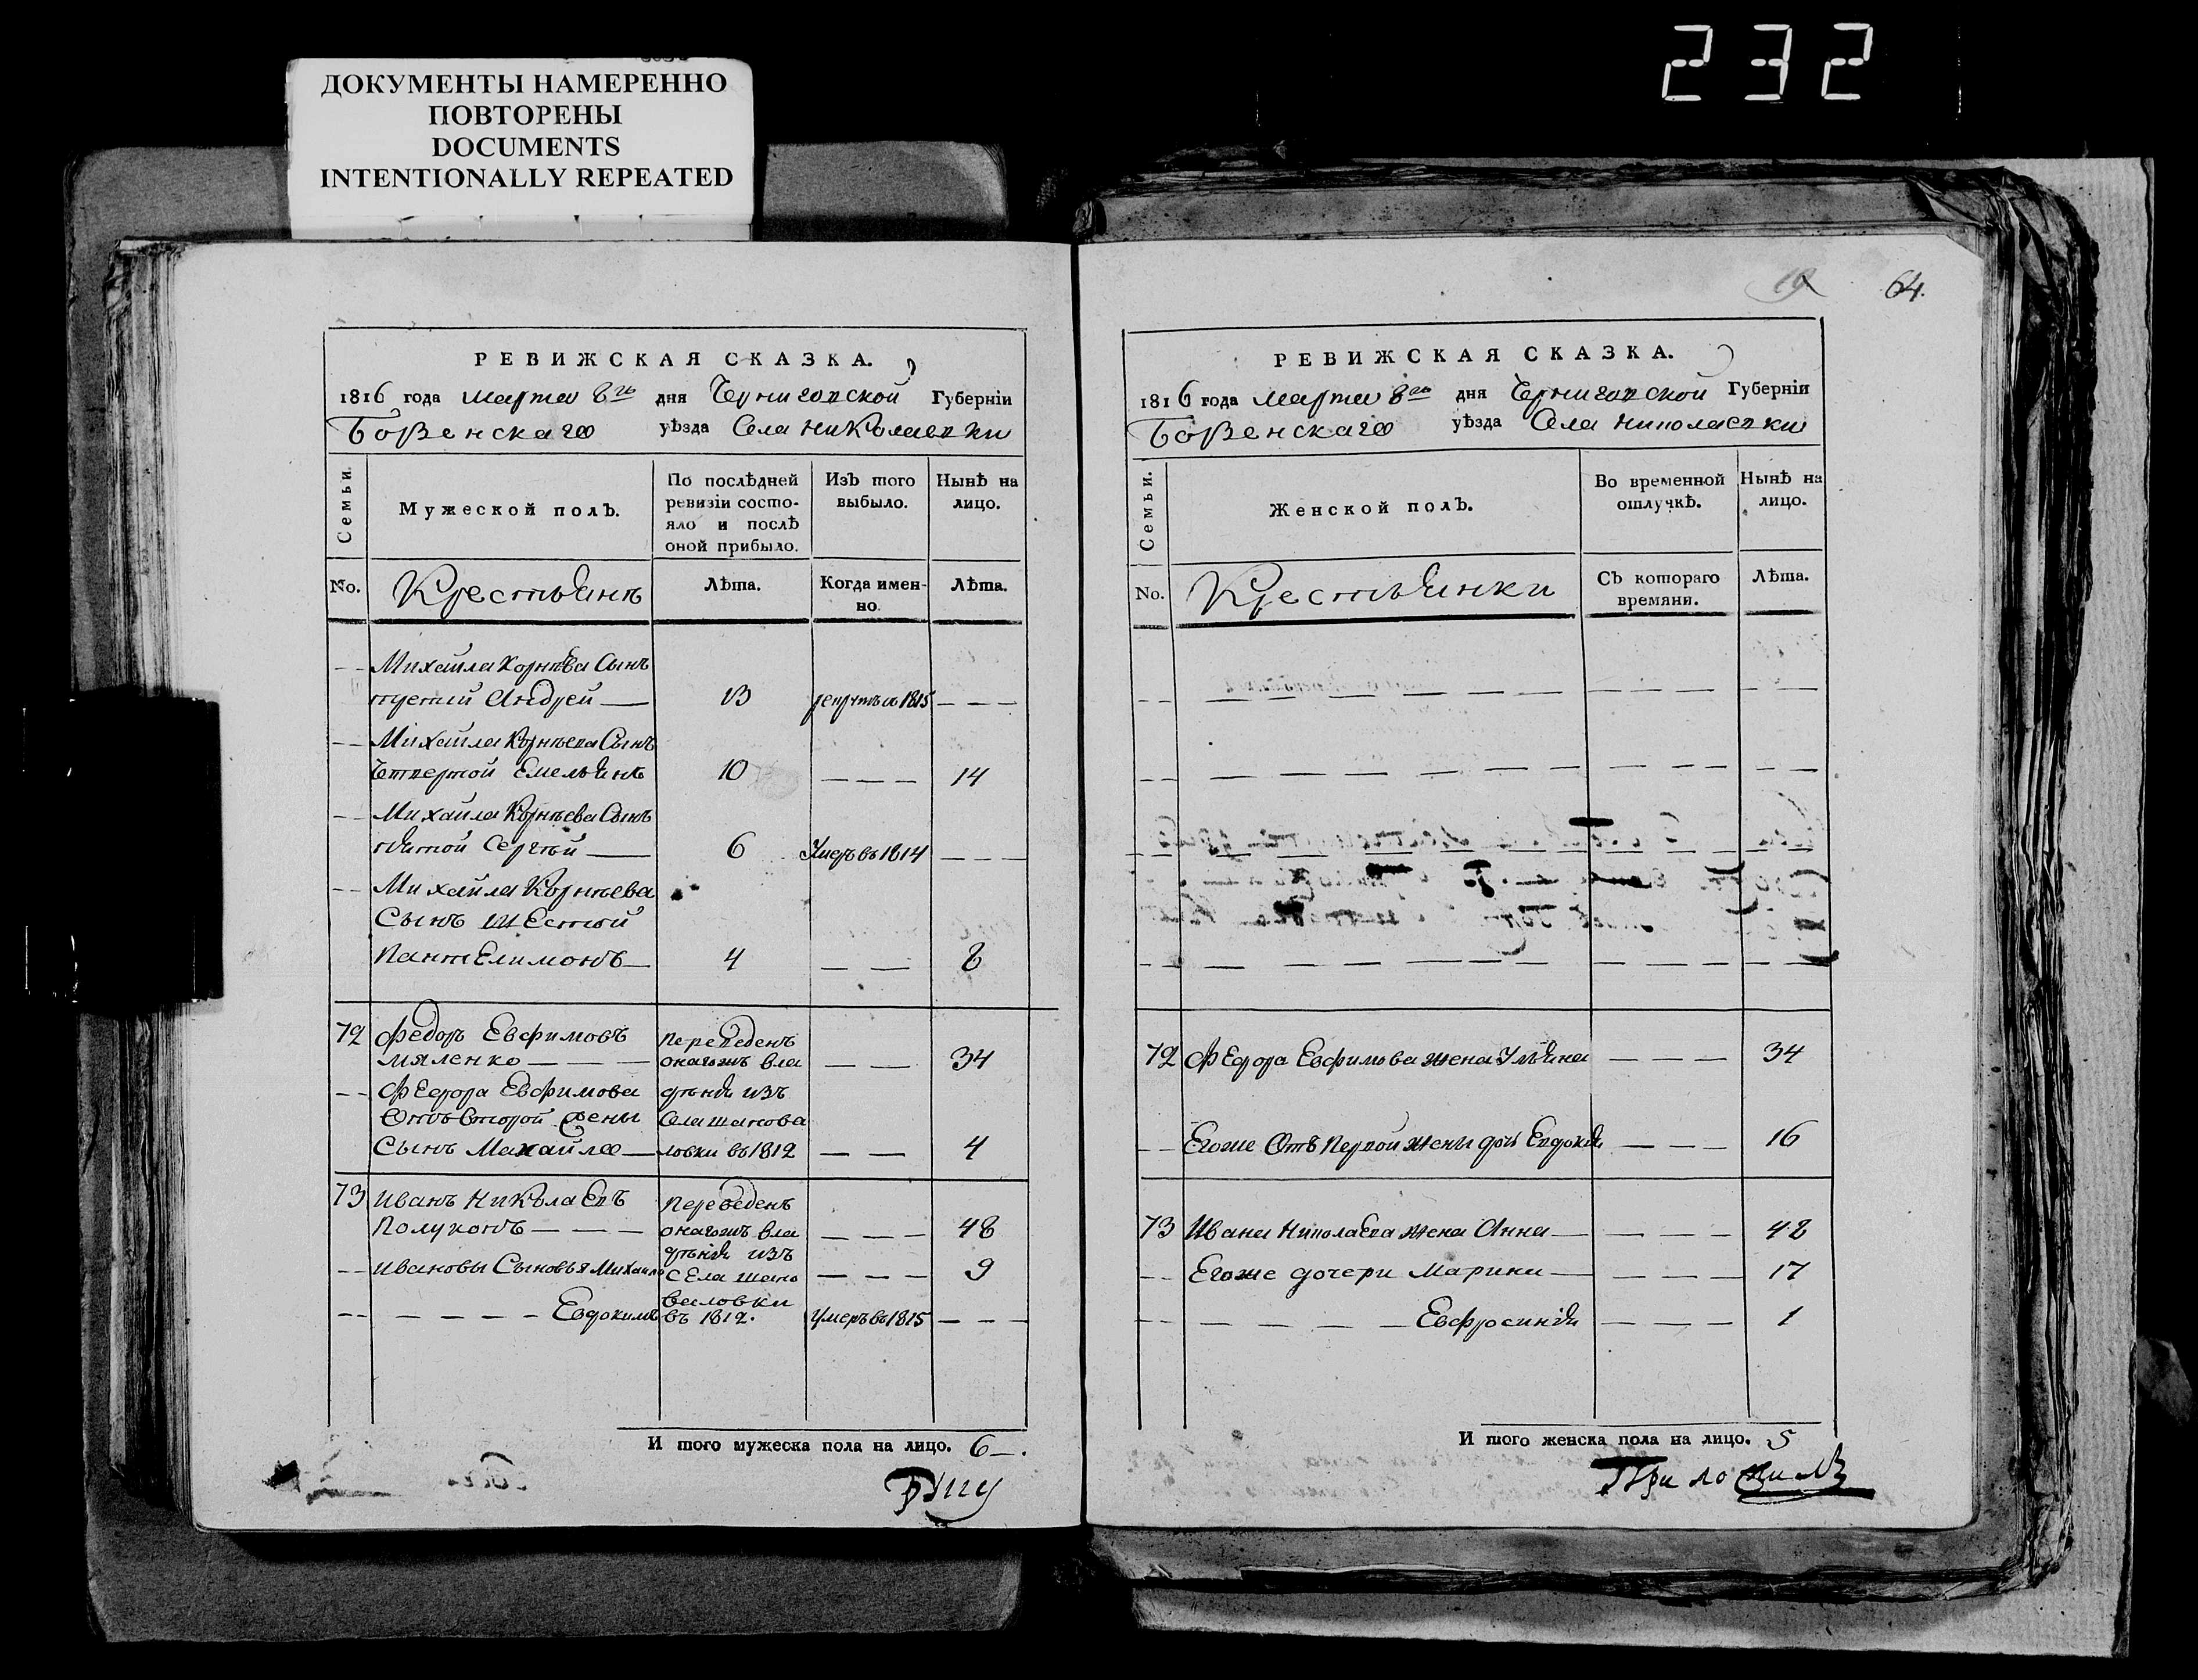 232
ДОКУМЕНТЫ НАМЕРЕННО
ПОВТОРЕНЫ
DOCUMENTS
INTENTIONALLY REPEATED
РЕВИЖСКАЯ СКАЗКА.
1816 года Марта 8го дня Черниговской Губерніи
Борзенскаго уѣзда Села Николаевки
Семьи.
Мужеской полъ.
По послѣдней ревизіи состояло и послѣ оной прибыло.
Изъ того выбыло.
Нынѣ на лицо.
No.
Крестьянъ
Лѣта.
Когда именно.
Лѣта.
Михайла Корнѣева Сынъ
третій Андрей 13 1815
Михайла Корнѣева Сынъ
Четвертой Емельянъ 10 14
Михайла Корнѣева Сынъ
пятой Сергѣй 6 Умеръ въ 1814
Михайла Корнѣева
Сынъ шестой
Пантелимонъ 4 8
72 Федоръ Евфимовъ Переведенъ
Маленко онагожъ вла 34
Федора Евфимова дѣнія изъ
Отъ второй жены Села шапова
Сынъ Михайло ловки въ 1812 4
73 Иванъ Николаевъ Переведенъ
Полухонъ онагожъ вла 48
дѣнія изъ
Ивановы Сыновья Михайло Села шапо 9
валовки
Евдокимъ въ 1812. Умеръ въ 1815
И того мужеска пола на лицо. 6
19 64.
РЕВИЖСКАЯ СКАЗКА.
1816 года Марта 8го дня Черниговской Губерніи
Борзенскаго уѣзда Села Николаевки
Семьи.
Женской полъ.
Во временной отлучкѣ.
Нынѣ на лицо.
No.
Крестьянки
Съ котораго времяни.
Лѣта.
72 Федора Евфимова жена Ульяна 34
Егоже Отъ Первой жены дочь Евдокія 16
73 Ивана Николаева жена Анна 48
Егоже дочери Марина 17
Евфросинія 1
И того женска пола на лицо. 5
Приложилъ